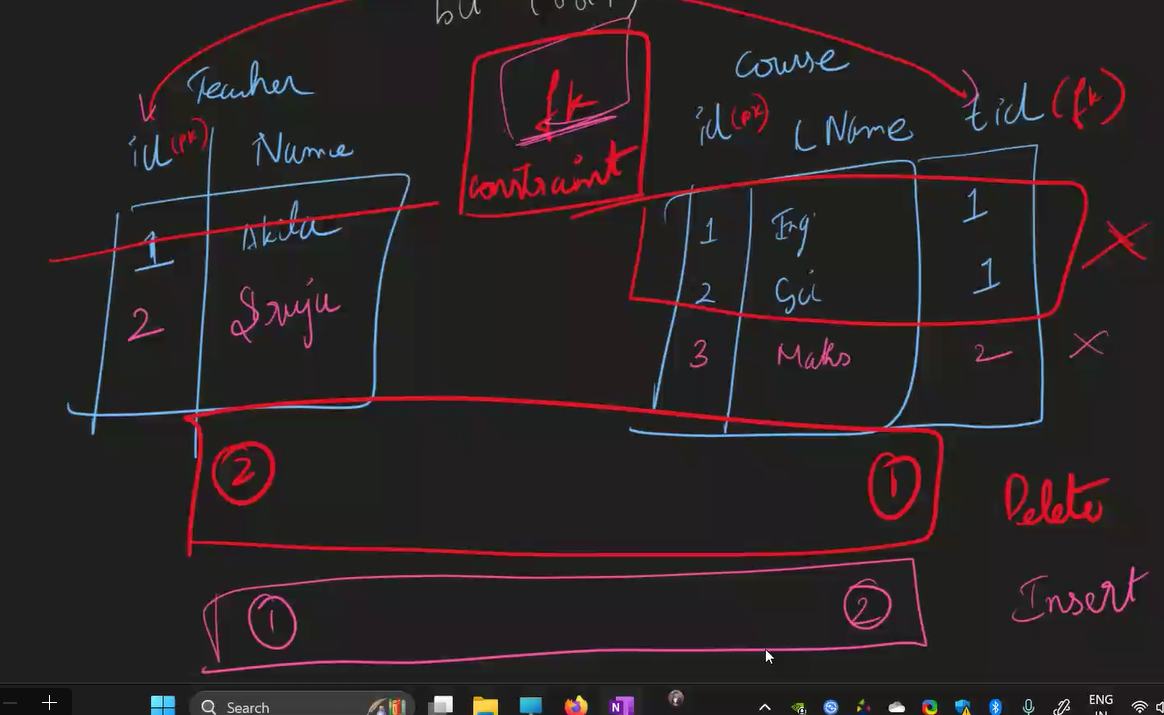 Teacher
id (pk) Name
1 Akila
2 Sruju
fk
constraint
Course
id (pk) CName tid (fk)
1 Eng 1
2 Sci 1
3 Maks 2
2 1 Delete
1 2 Insert
Search
ENG
IN